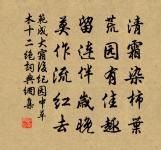 清霜染柿葉
荒园有佳趣
留连伴歲晚
莫作流红去
范成大霜後纪园中草
木十二绝詞典網集